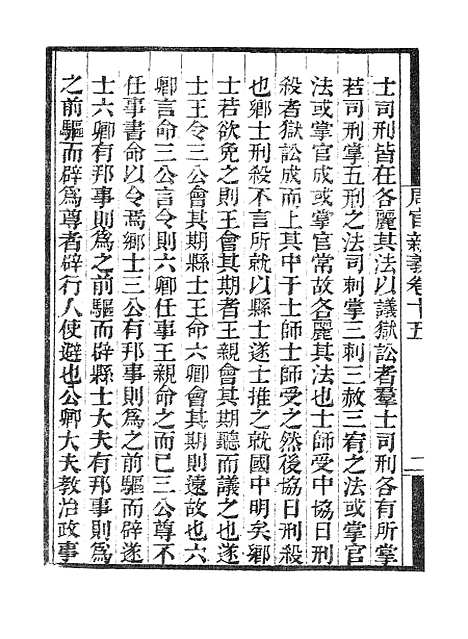 士司刑皆在各麗其法以議獄訟者羣士司刑各有所掌
若司刑掌五刑之法司刺掌三刺三赦三宥之法或掌官
法或掌官成或掌官常故各麗其法也士師受中協日刑
殺者獄訟成而上其中于士師士師受之然後協日刑殺
也鄉士刑殺不言所就以縣士遂士推之就國中明矣鄉
士若欲免之則王會其期者王親會其期聽而議之也遂
士王令三公會其期縣士王命六卿會其期則遠故也六
卿言命三公言令則六卿任事王親命之而已三公尊不
任事書命以令焉鄉士三公有邦事則爲之前驅而辟遂
士六卿有邦事則爲之前驅而辟縣士大夫有邦事則爲
之前驅而辟爲尊者辟行人使避也公卿大夫教治政事
周官新義卷十五
二